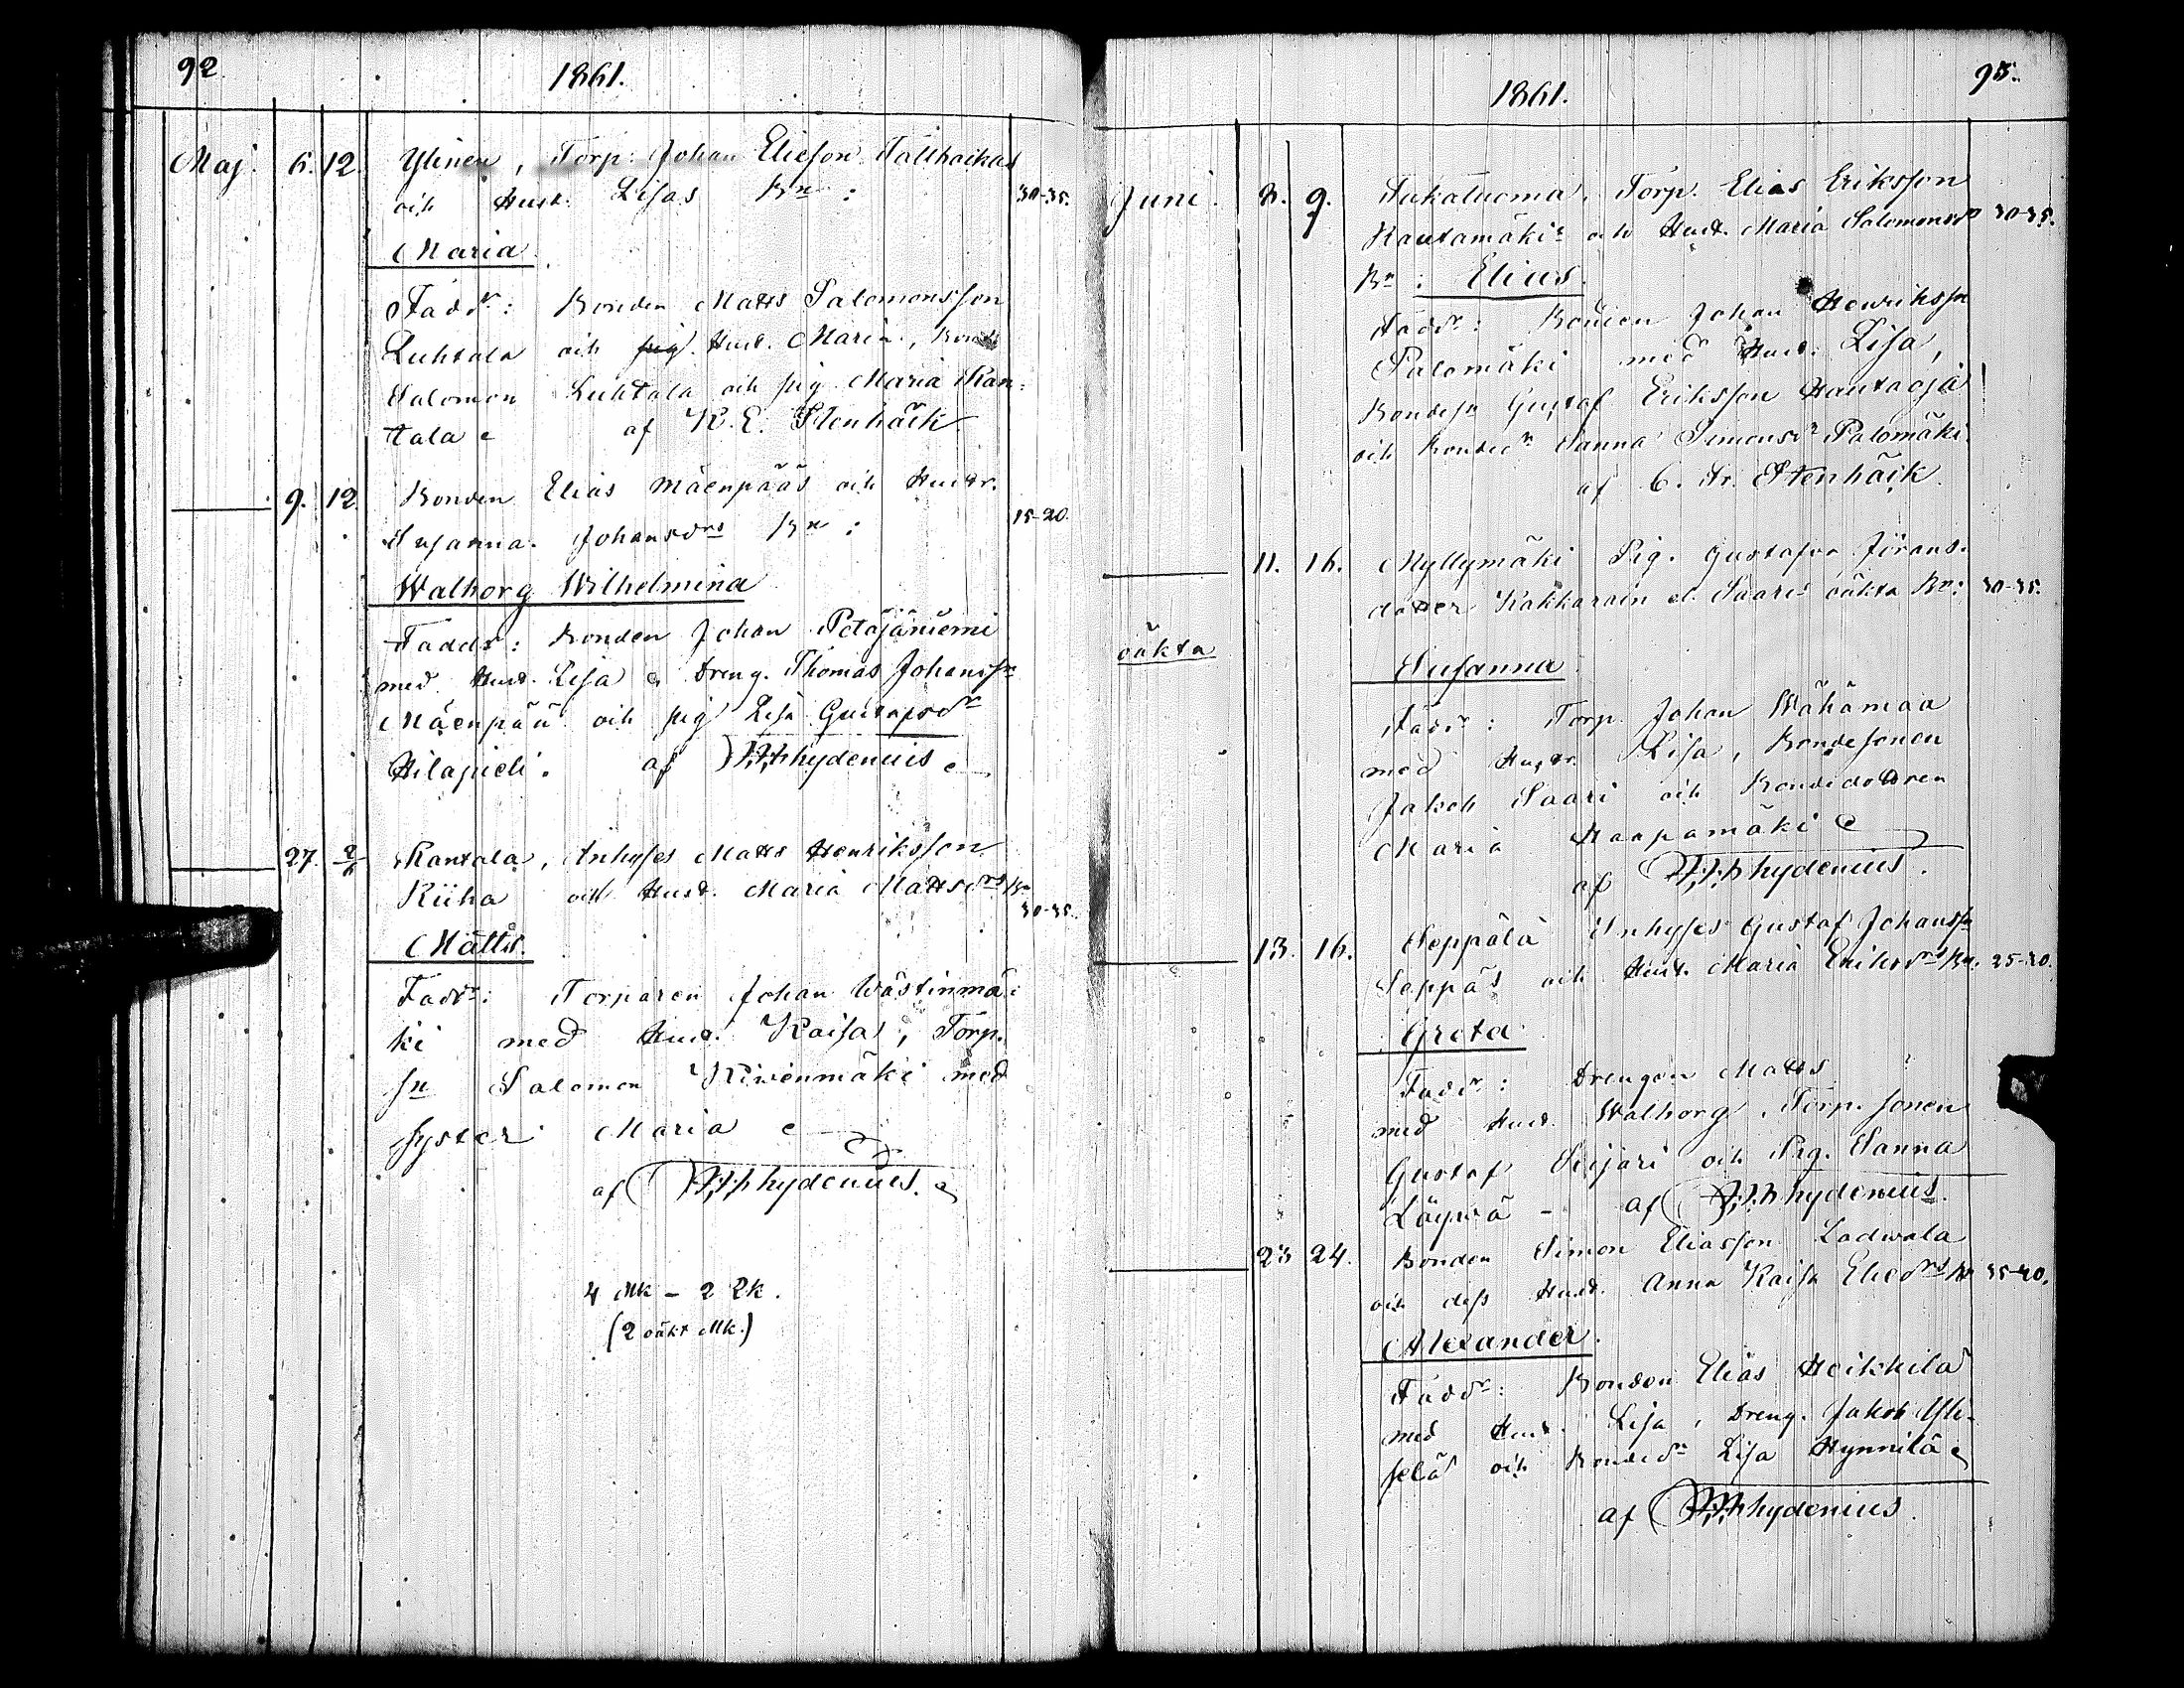 92 1861.
Maj. 6. 12. Ylinen, Torp. Johan Eliesson Tallbackas
och Hust. Lisas Bn: 30-35.
Maria
Faddr: Bonden Matts Salomonsson
Luhtala och Hust. Maria, Bond
Salomon Luhtala och pig. Maria Ran-
tala af K. E. Stenbäck
9. 12. Bonden Elias Mäenpääs och Hustr.
Susanna Johansdrs Bn: 15-20.
Walborg Wilhelmina
Faddr: Bonden Johan Petäjäniemi
med Hust. Lisa Dreng. Thomas Johanss
Mäenpää och pig Lisa Gustafsdr
Hilapieli. af hydenius
27. 2/6 Rantala, Inhyses Matts Henriksson
Riiha och Hust. Maria Mattsdrs Bn
30-35.
Matts.
Fadr: Torparen Johan Wästinmä-
ki med Hust. Kaisa, Torp.
sn Salomon Kivenmäki med
syster Maria
af hydenius.
4 Mk - 2 Qk.
(2 oäkt Mk.)
1861. 93.
Juni. 8. 9. Torp. Elias Eriksson
Rautamäkis och Hust. Maria Salomonsdrs 30-35.
Bn: Elias.
Faddr: Bonden Johan Henrikssn
Palomäki med Hust. Lisa,
Bondesn Gustaf Eriksson Hautaoja
och Bondedr Sanna Simonsdr Palomäki.
af C. Fr. Stenbäck.
11. 16. Myllymäki Pig. Gustafva Jörans-
dotter el. Saaris oäkta Bn: 30-35.
oäkta
Susanna
Fadr: Torp. Johan Wähämaa
med Hustr. Lisa, Bondesonen
Jakob Saari och Bondedottren
Maria Haapamäki
af hydenius.
13. 16. Seppälä Inhyses Gustaf Johanss
Seppäs och Hust. Maria Eriksdrs Bn. 25-30.
Greta
Faddr: Drengen Matts
med Hust. Walborg, Torp. sonen
Gustaf och Pig. Sanna
af hydenius.
23 24. Bonden Simon Eliasson Ladwala
och dess Hust. Anna Kaisa Eliedrs Bn 35-40.
Alexander.
Faddr: Bonden Elias Heikkilä
med Hust. Lisa, Dreng. Jakob Yli-
selä och Bondedr Lisa Hynnilä
af hydenius.